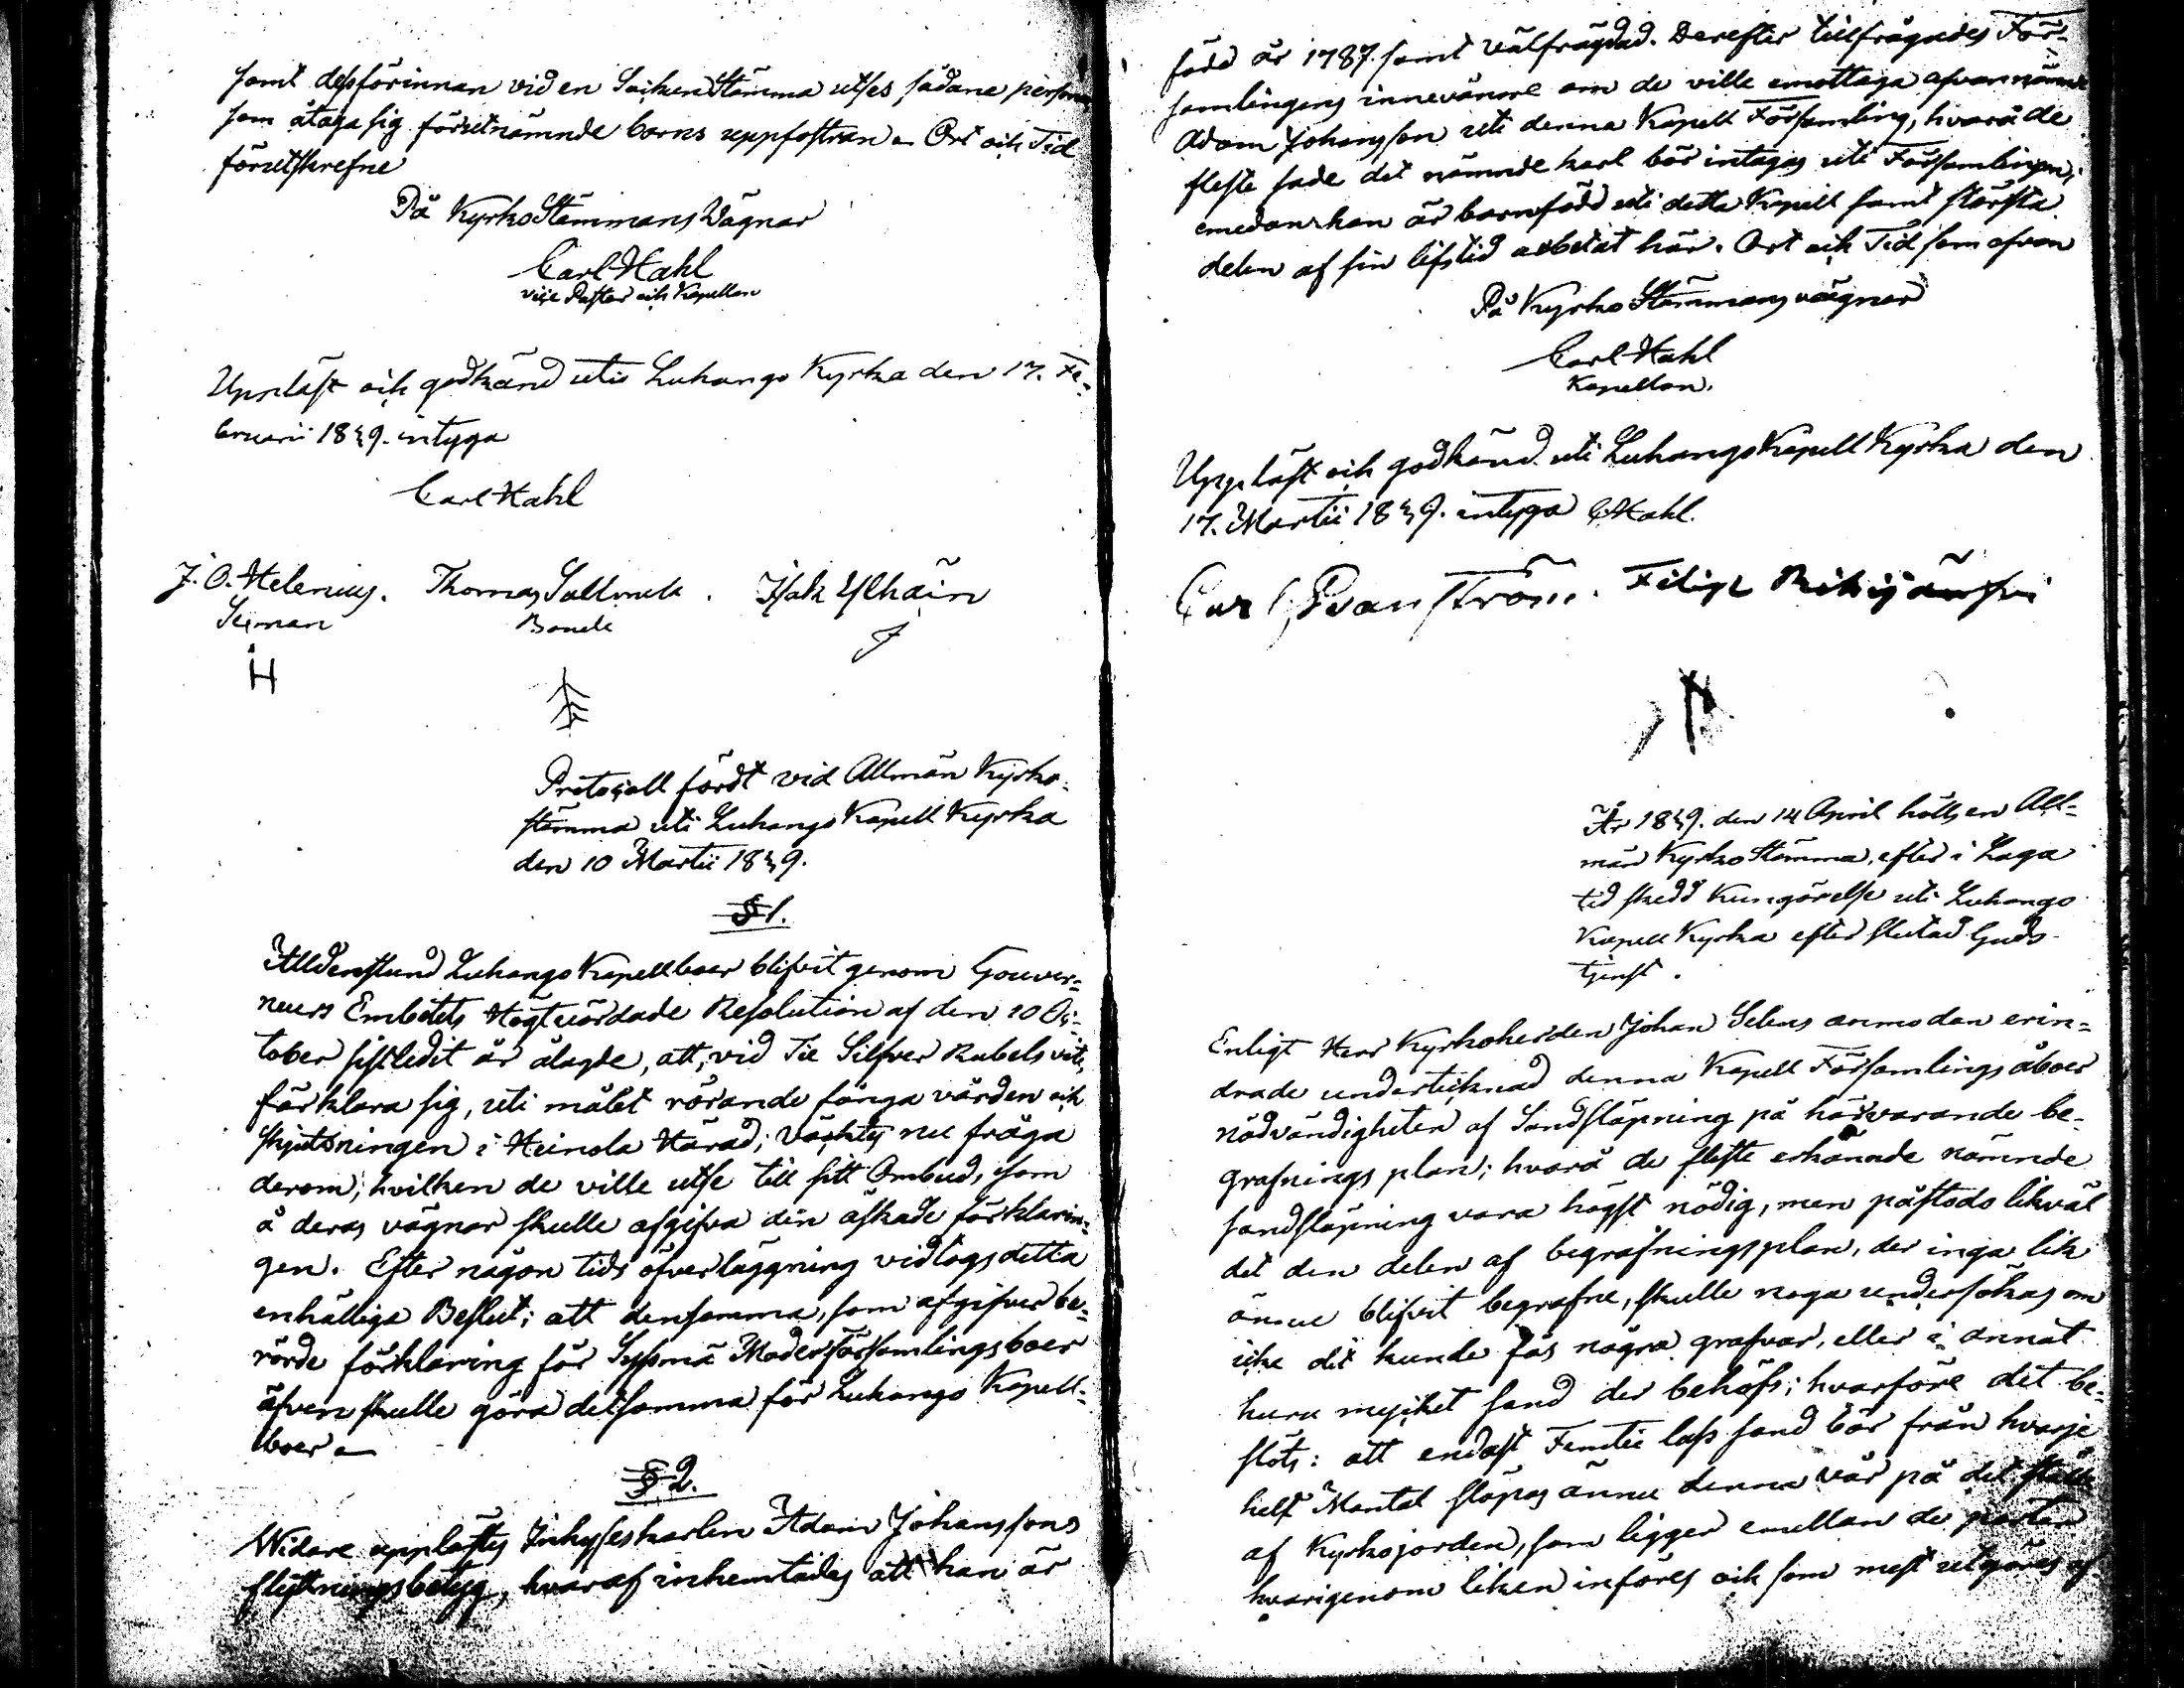 samt dessförinnan vid en Sockenstämma utses sådane personer
som åtaga sig förutnämnde barns uppfostran. Ort och Tid
förutskrefne
På KyrkoStämmans Vägnar
Carl Hahl
vice Pastor och Kapellan
Uppläst och godkänd uti Luhango Kyrka den 17. Fe-
bruarii 1849. intyga
Carl Hahl
J. O. Helenius. Thomas Isak
Sexman Bonde
H
Protocoll fördt vid Allmän Kyrko-
stämma uti Luhango Kapell Kyrka
den 10 Martii 1849.
§ 1.
Alldenstund Luhango Kapellboer blifvit genom Gouver-
neurs Embetets Högtvördade Resolution af den 20 Oc-
tober sistledit år ålagde, att, vid Tie Silfver Rubels vite,
förklara sig, uti målet rörande fånga vården och
skjutsningen i Heinola Härad; väcktes nu fråga
derom, hvilken de ville utse till sitt Ombud, som
å deras vägnar skulle afgifva den äskade förklarin-
gen. Efter någon tids öfverläggning vidtogs detta
enhälliga Beslut; att densamma, som afgifver be-
rörde förklaring för Sysmä Moderförsamlingsboer
äfven skulle göra detsamma för Luhango Kapell-
boer
§ 2.
Widare upplästes Inhyseskarlen Adam Johanssons
flyttningsbetyg, hvaraf inhemtades att han är
född år 1787. samt välfrägdad. Derefter tillfrågades För-
samlingens innevånare om de ville emottaga afvannämnde
Adam Johansson uti denna Kapell Församling, hvarå de
fleste sade det nämnde karl bör intagas uti Församlingen,
emedan han är barnfödd uti detta Kapell samt största
delen af sin lifstid arbetat här. Ort och Tid som ofvan
På Kyrko Stämmans vägnar
Carl Hahl
Kapellan.
Uppläst och godkänd uti Luhango Kapell Kyrka den
17. Martii 1849. intyga C. Hahl.
Carl Filip
År 1849. den 14 April hölls en All-
män KyrkoStämma, efter i Laga
tid skedd Kungörelse uti Luhango
Kapell Kyrka efter slutad Guds-
tjenst.
Enligt Herr Kyrkoherden Johan anmodan erin-
drade undertecknad denna Kapell Församlings åboer
nödvändigheten af Sandsläpning på härvarande be-
grafnings plan; hvarå de fleste erkännde nämnde
sandsläpning vara högst nödig, men påstodo likväl
det den delen af begrafningsplan, der inga lik
ännu blifvit begrafne, skulle noga undersökas om
icke dit kunde fås några grafvar, eller i annat
huru mycket sand der behöfs; hvarföre det be-
slöts: att endast Femtie lass sand bör från hvarje
helt Mantal släpas ännu denna vår på det ställe
af Kyrkojorden, som ligger emellan de portar
hvarigenom liken införes och som mest utgöres af